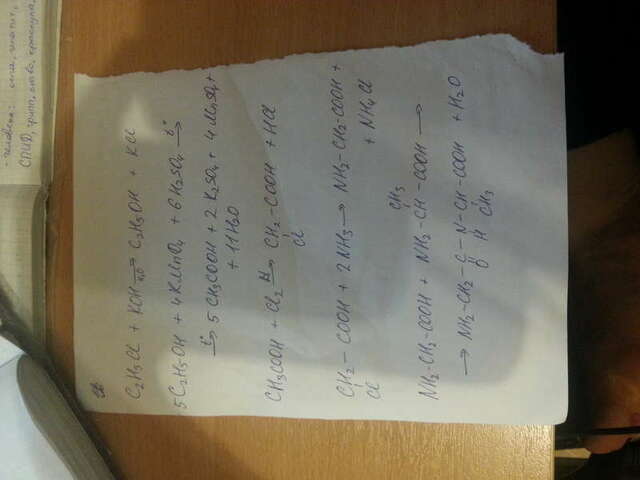 - человека: оспа, гепатит,
СПИД, грипп, , краснуха,
C₂H₅Cl + KOH →(H₂O) C₂H₅OH + KCl
5C₂H₅OH + 4KMnO₄ + 6H₂SO₄ →(t°)
→(t°) 5CH₃COOH + 2K₂SO₄ + 4MnSO₄ +
+ 11H₂O
CH₃COOH + Cl₂ → CH₂-COOH + HCl
Cl
CH₂ - COOH + 2NH₃ → NH₂-CH₂-COOH +
Cl + NH₄Cl
CH₃
NH₂-CH₂-COOH + NH₂-CH-COOH →
→ NH₂-CH₂-C-N-CH-COOH + H₂O
O H CH₃